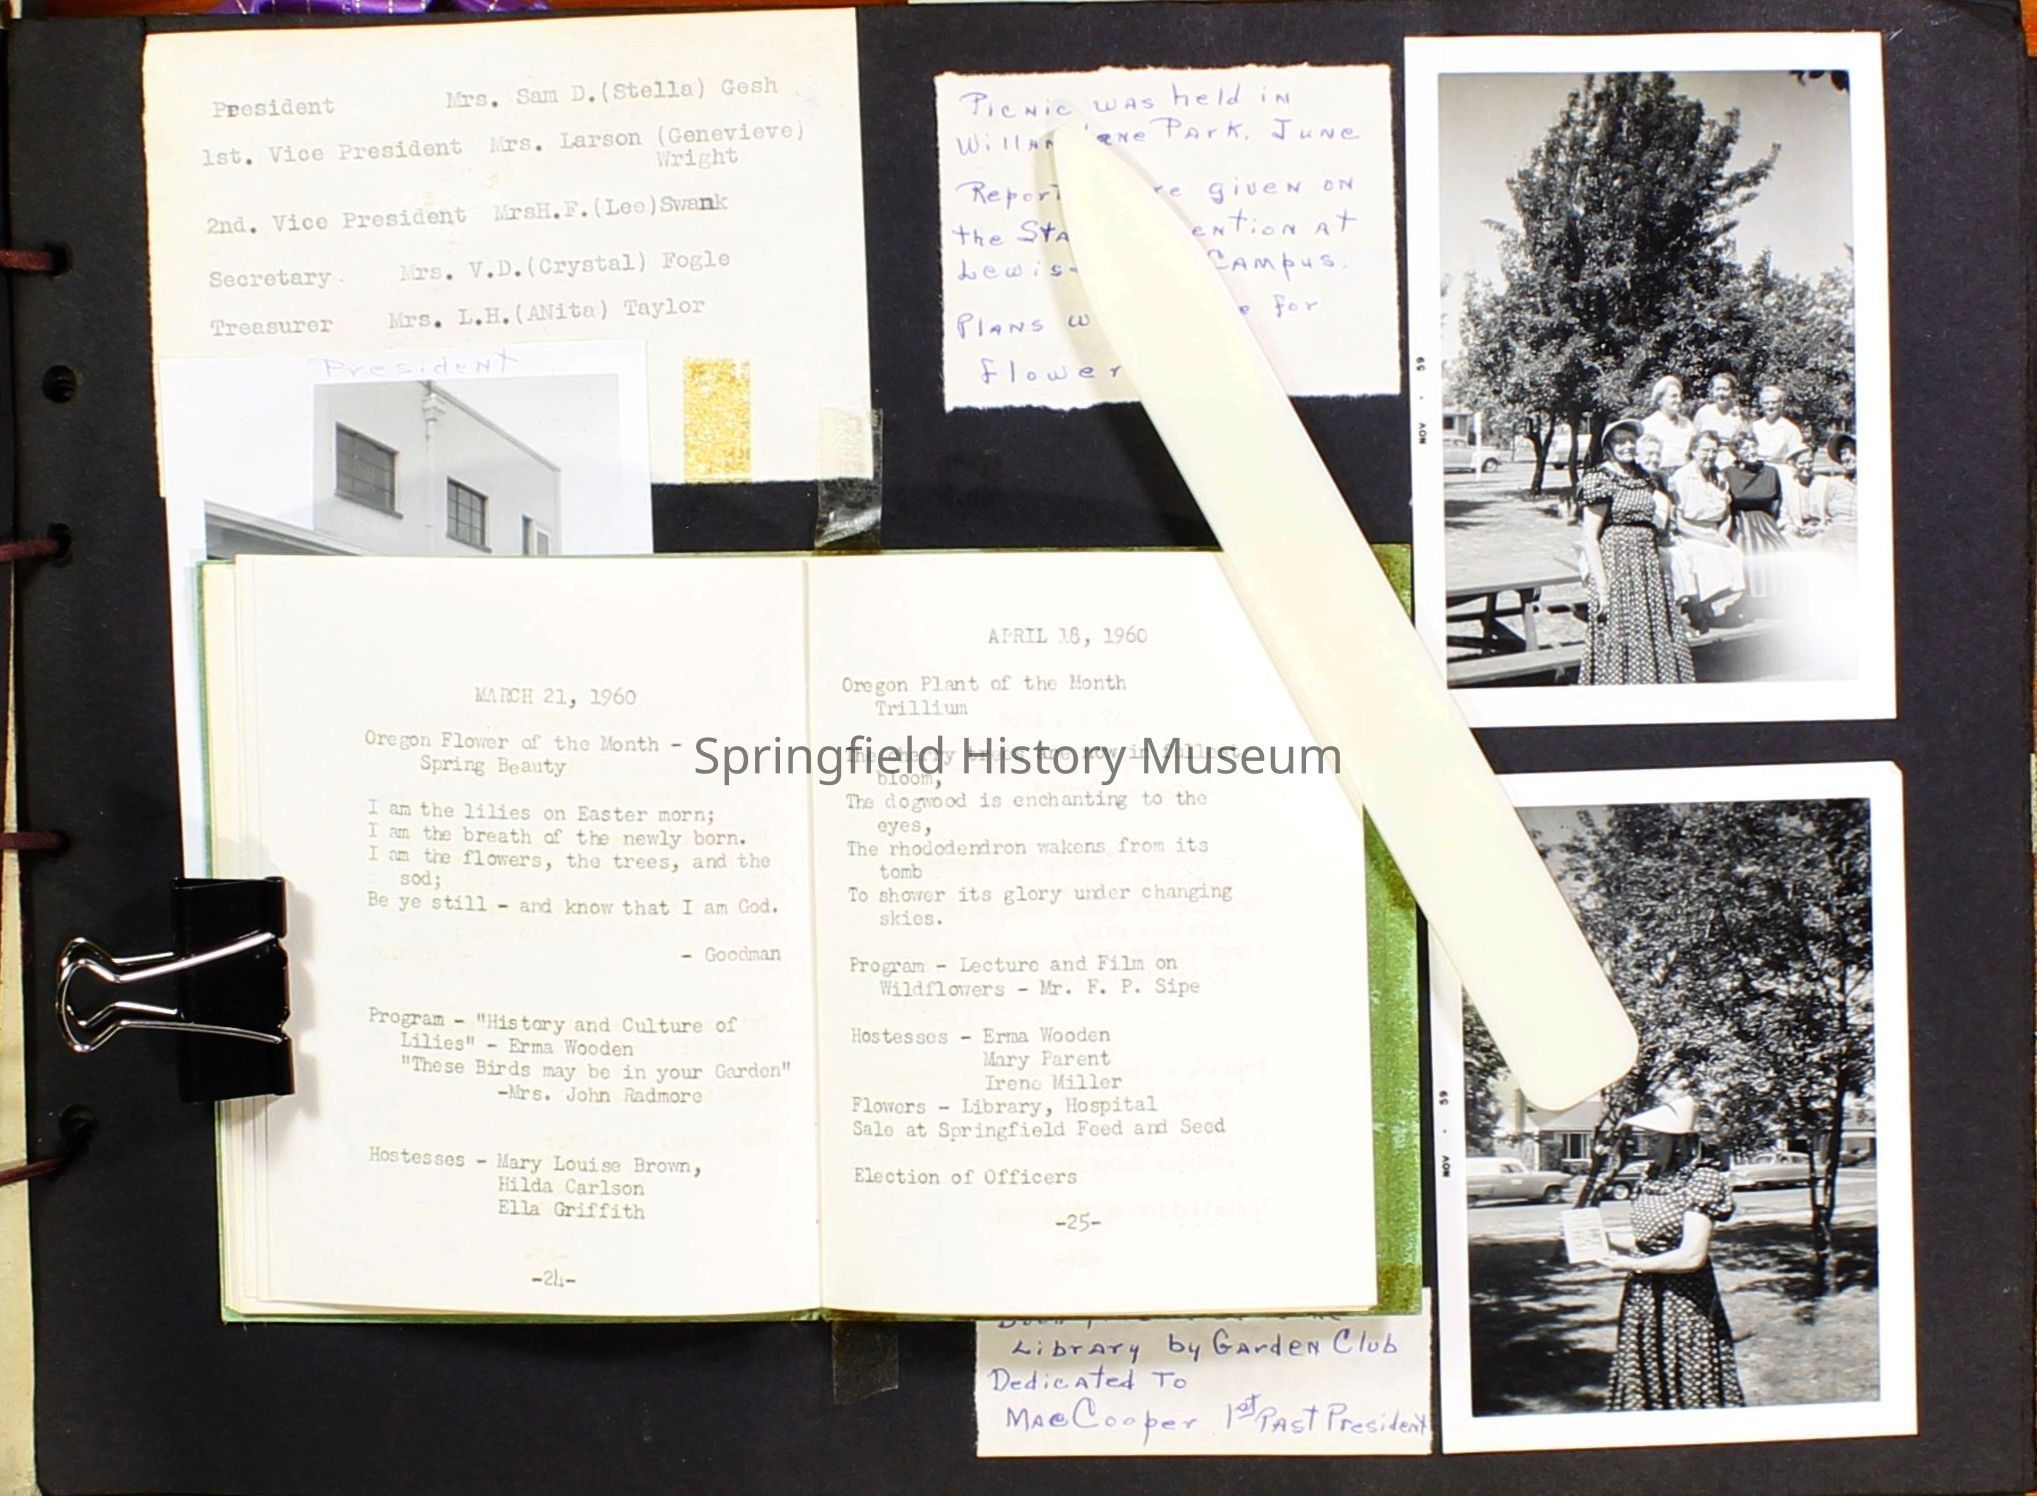 President Mrs. Sam D.(Stella) Gesh
1st. Vice President Mrs. Larson (Genevieve)
Wright
2nd. Vice President MrsH.F.(Lee)Swank
Secretary. Mrs. V.D.(Crystal) Fogle
Treasurer Mrs. L.H.(ANita) Taylor
President
Picnic was held in
Park. June
given on
the at
Lewis- Campus.
Plans for
flower
NOV • 59
MARCH 21, 1960
Oregon Flower of the Month -
Spring Beauty
I am the lilies on Easter morn;
I am the breath of the newly born.
I am the flowers, the trees, and the
sod;
Be ye still - and know that I am God.
- Goodman
Program - "History and Culture of
Lilies" - Erma Wooden
"These Birds may be in your Garden"
-Mrs. John Radmore
Hostesses - Mary Louise Brown,
Hilda Carlson
Ella Griffith
-24-
APRIL 18, 1960
Oregon Plant of the Month
Trillium
The cherry trees are now in fullest
bloom,
The dogwood is enchanting to the
eyes,
The rhododendron wakens from its
tomb
To shower its glory under changing
skies.
Program - Lecture and Film on
Wildflowers - Mr. F. P. Sipe
Hostesses - Erma Wooden
Mary Parent
Irene Miller
Flowers - Library, Hospital
Sale at Springfield Feed and Seed
Election of Officers
-25-
Springfield History Museum
NOV • 59
Library by Garden Club
Dedicated To
Mae Cooper 1st Past President